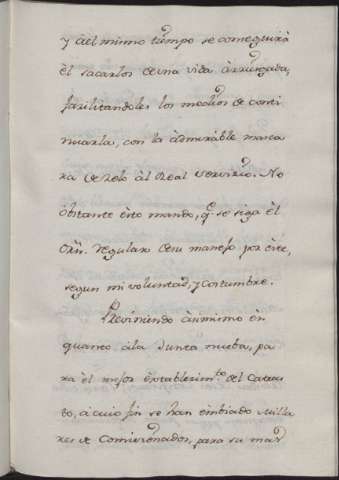 y àel mismo tiempo se conseguirà
èl sacarlos de una vida àrriesgada,
facilitandoles los medios de conti
nuarla, con la àdmirable
de zelo àl Real servicio. No
òbstante èsto mando, q.e se siga èl
òrn. regular de su manejo por èste,
segun mi voluntad, y costumbre.
Previniendo àsimismo èn
quanto àla Junta nueba, pa
ra èl mejor èstablecim.to del Catas
tro, à cuio fin se han embiado Milla
res de Comisionados, para su mas